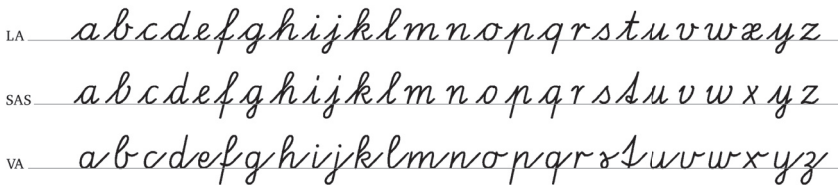 LA abcdefghijklmnopqrstuvwxyz
SAS abcdefghijklmnopqrstuvwxyz
VA abcdefghijklmnopqrstuvwxyz